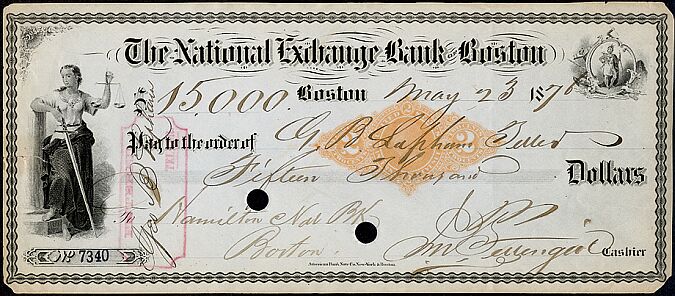 The National Exchange Bank of Boston
$15.000. Boston May 23 1876
Pay to the order of G. B. Lapham Teller
Fifteen Thousand Dollars
To Hamilton Nat Bk
Boston
Cashier
No 7340
American Bank Note Co. New York & Boston.